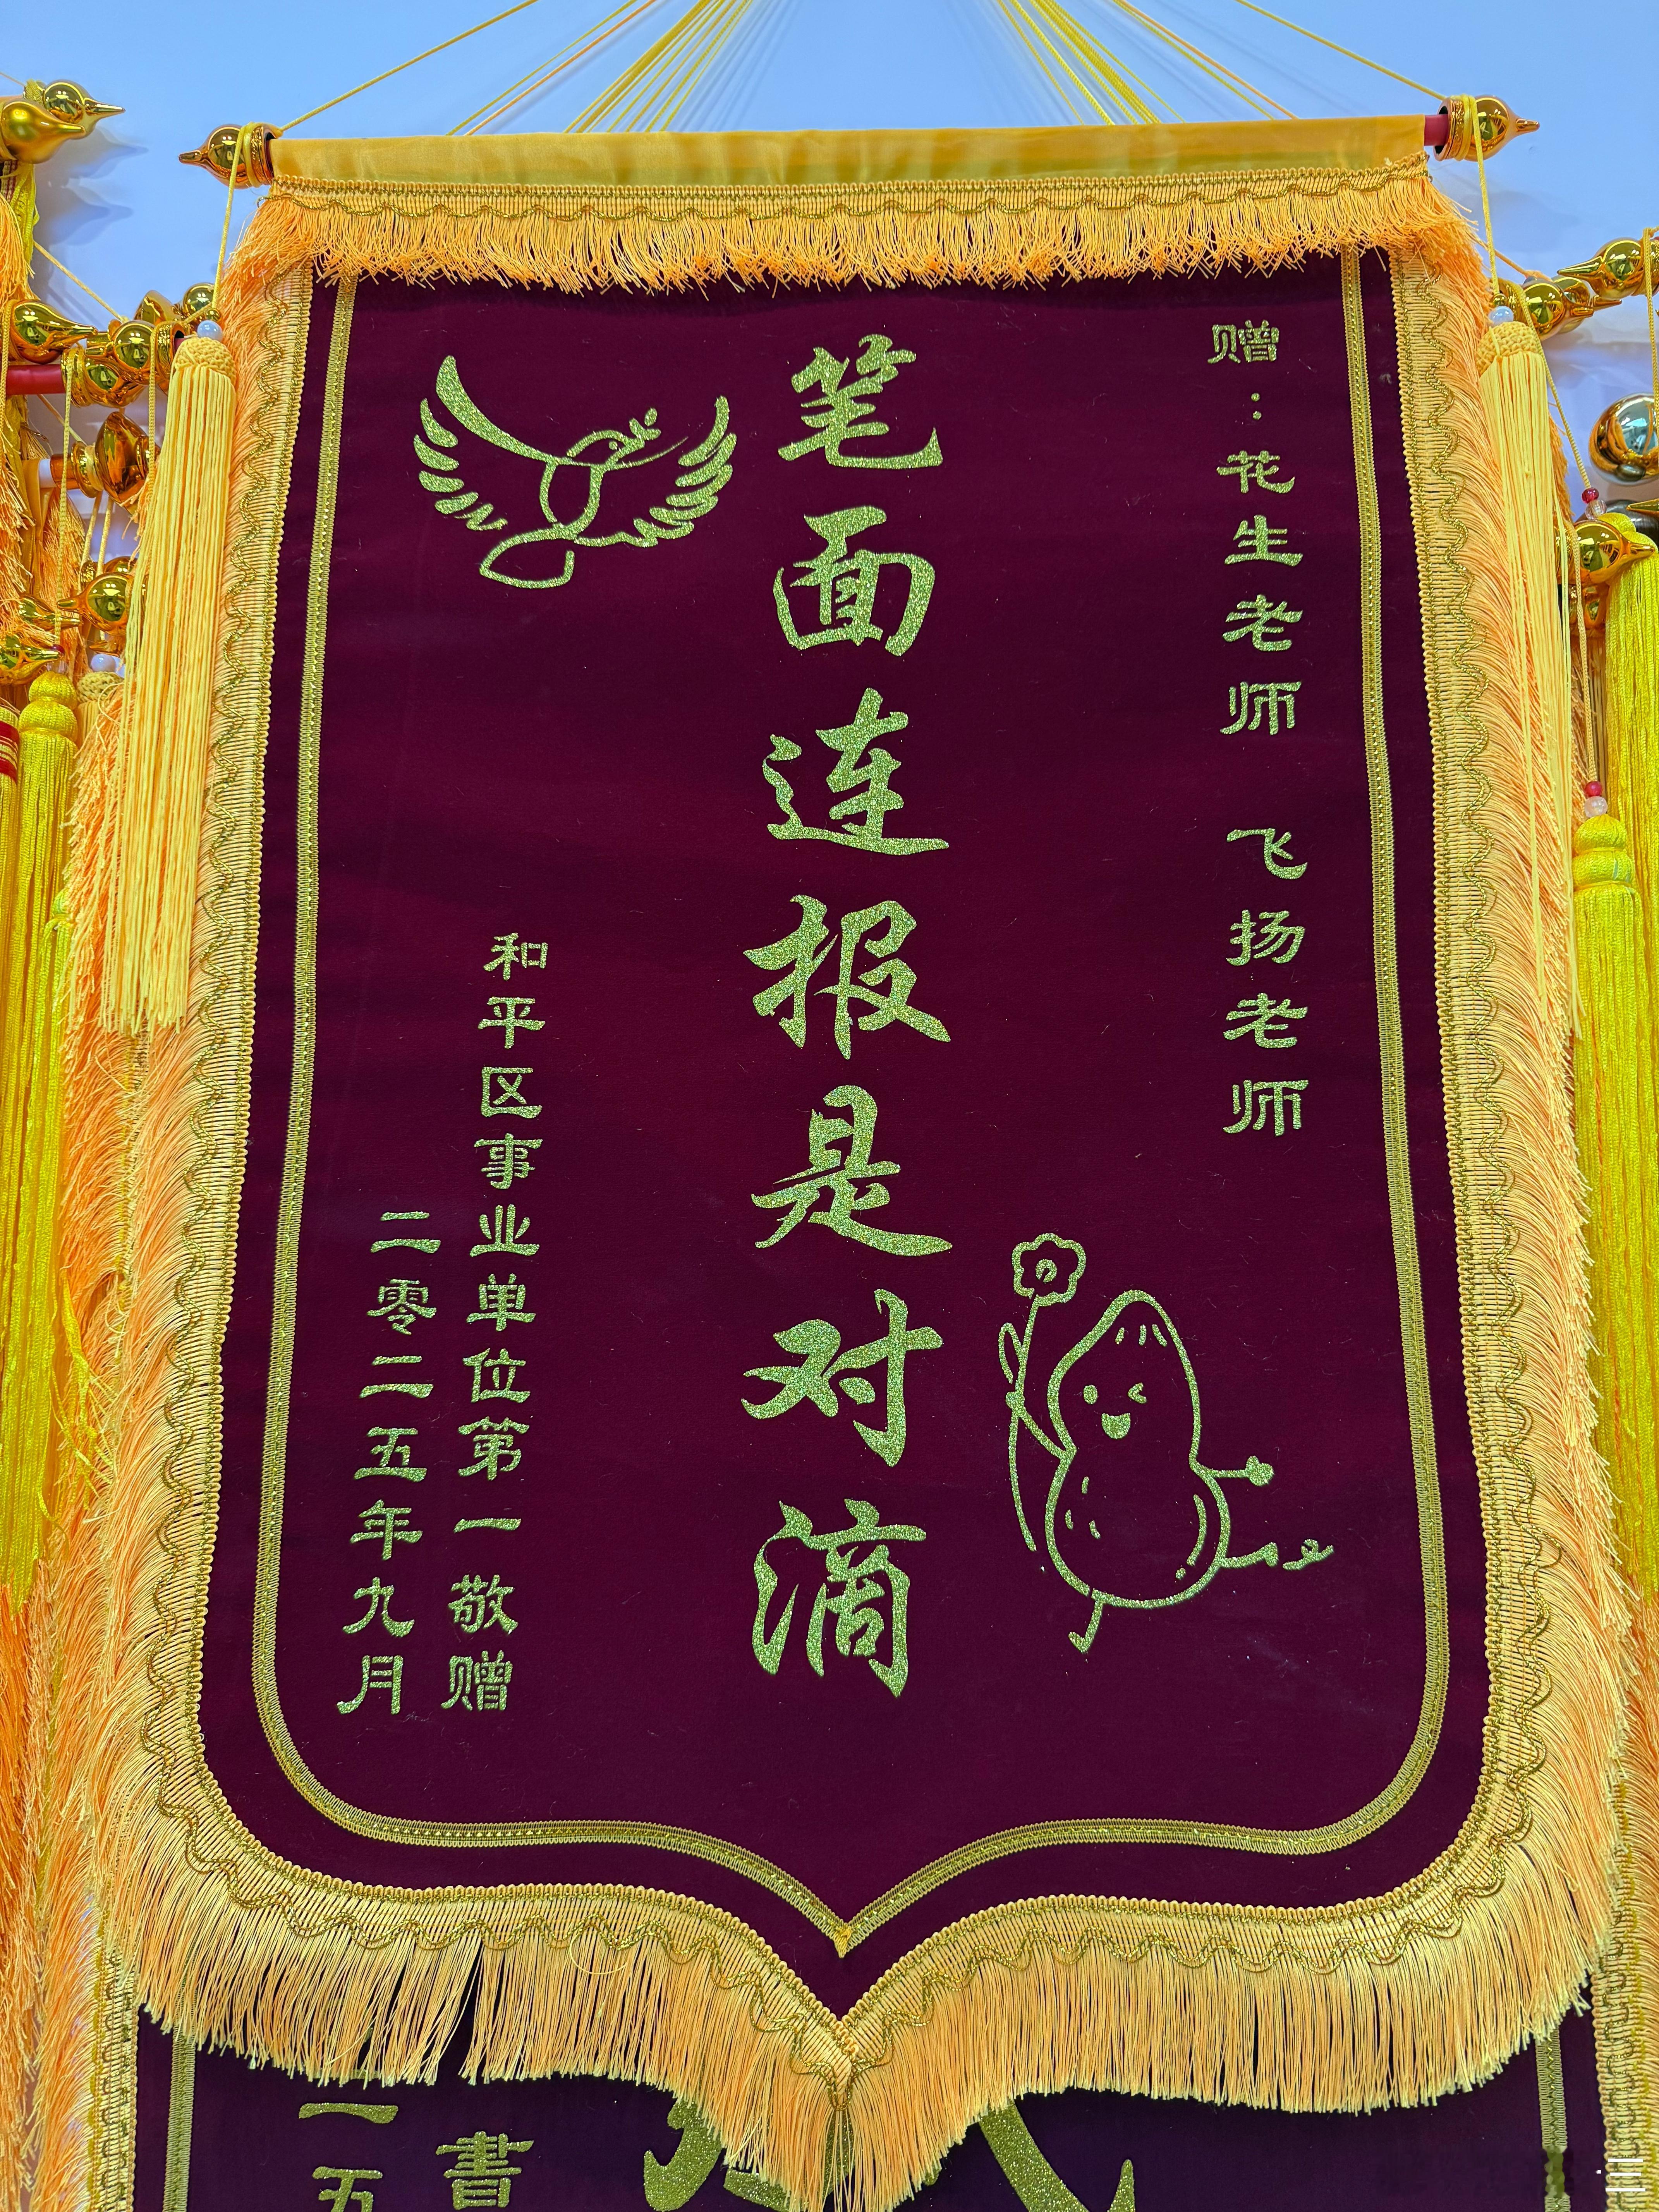 赠：花生老师 飞扬老师
笔面连报是对滴
和平区事业单位第一敬赠
二零二五年九月
書
一五